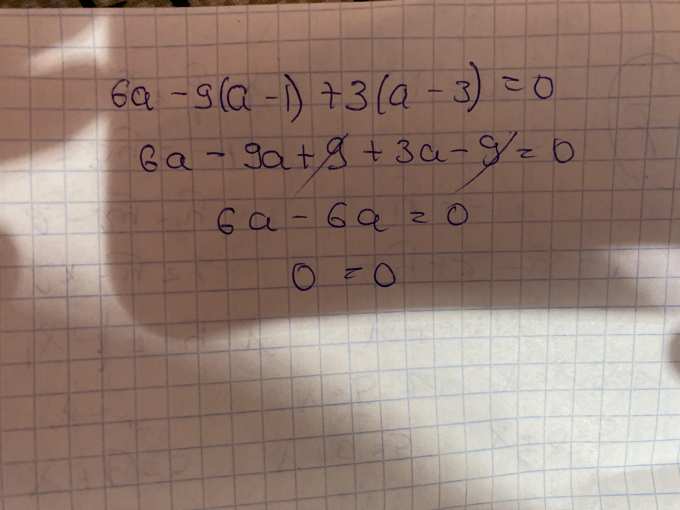 6a - 9(a - 1) + 3(a - 3) = 0
6a - 9a + 9 + 3a - 9 = 0
6a - 6a = 0
0 = 0